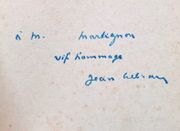 à M. Martignon
vif hommage
Jean